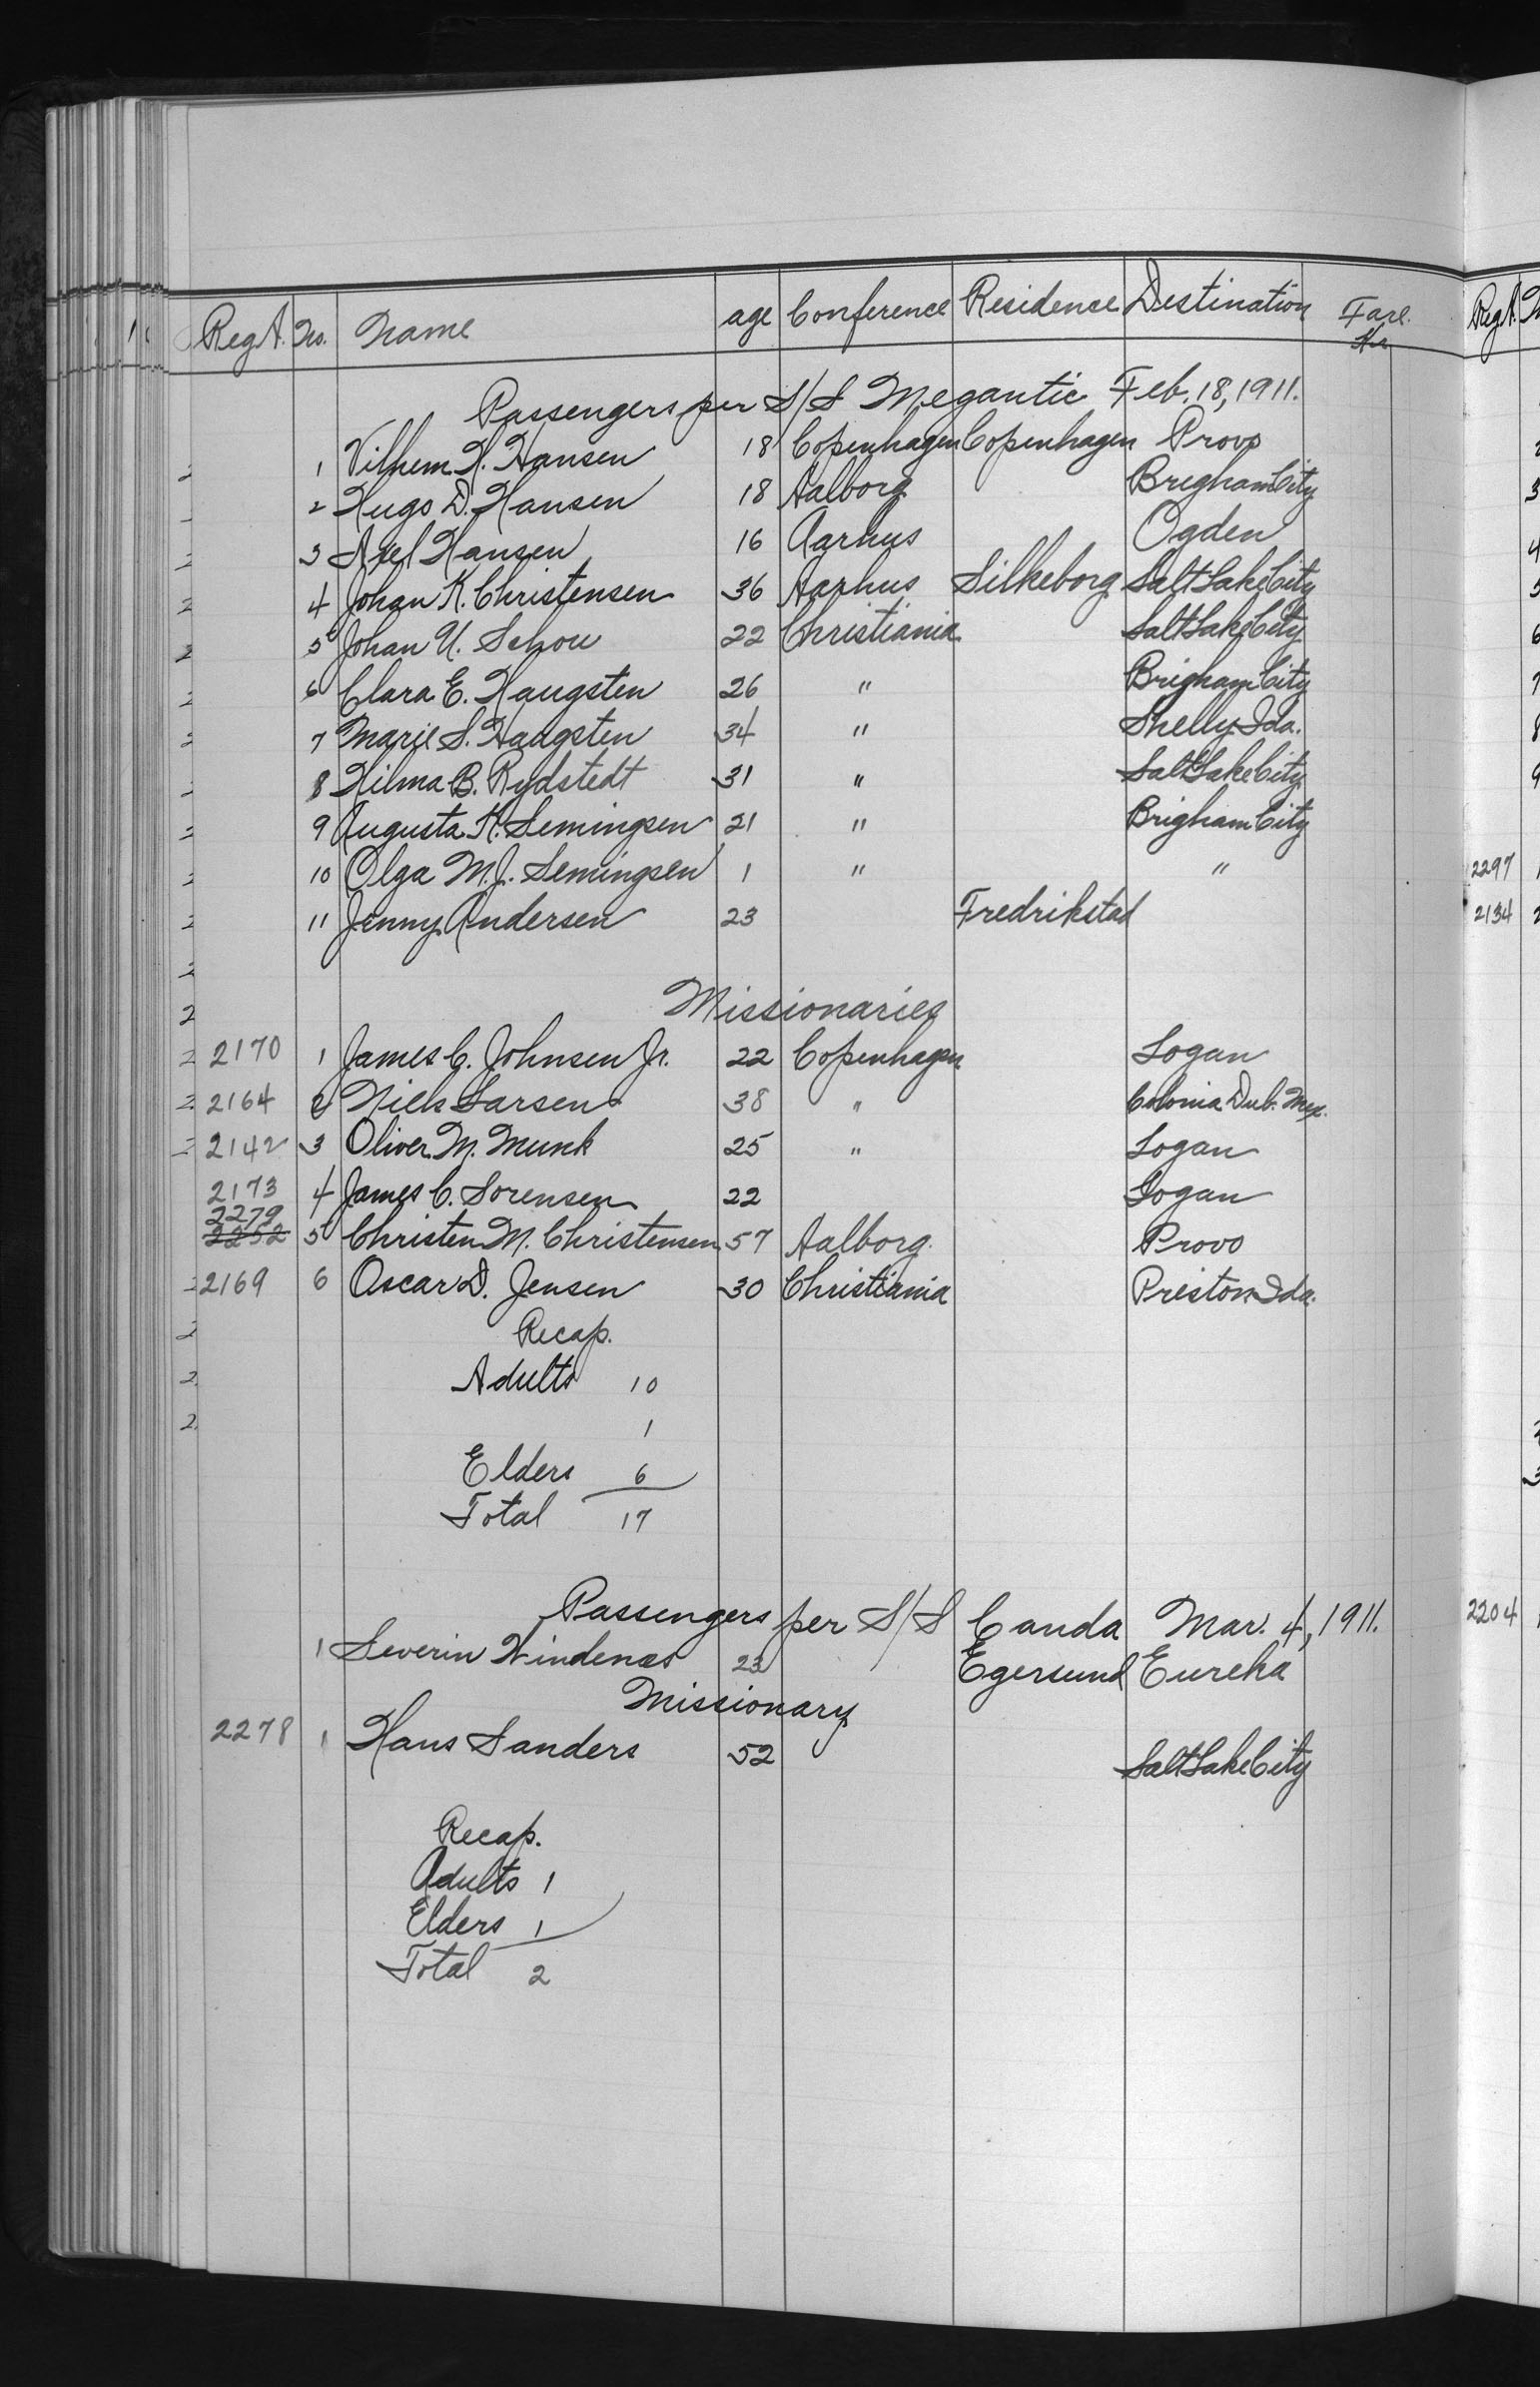 RegA. No. Name age Conference Residence Destination Fare.
Kr.
Passengers per S/S Megantic Feb. 18, 1911.
1 Vilhem H. Hansen 18 Copenhagen Copenhagen Provo
2 Hugo D. Hansen 18 Aalborg Brigham City
3 Axel Hansen 16 Aarhus Ogden
4 Johan K. Christensen 36 Aarhus Silkeborg Salt Lake City
5 Johan U. Schou 22 Christiania Salt Lake City
6 Clara E. Haugsten 26 " Brigham City
7 Marie S. Haugsten 34 " Shelly Ida.
8 Hilma B. Rydstedt 31 " Salt Lake City
9 Augusta K. Semingsen 21 " Brigham City
10 Olga M. J. Semingsen 1 " "
11 Jenny Andersen 23 Fredrikstad
Missionaries
2170 1 James C. Johnsen Jr. 22 Copenhagen Logan
2164 2 Niels Larsen 38 " Colonia Dub. Mex.
2142 3 Oliver M. Munk 25 " Logan
2173 4 James C. Sorensen 22 Logan
2279
2252 5 Christen M. Christensen 57 Aalborg. Provo
2169 6 Oscar D. Jensen 30 Christiania Preston Ida.
Recap.
Adults 10
1
Elders 6
Total 17
Passengers per S/S Canda Mar. 4, 1911.
1 Severin Windenæs 23 Egersund Eureka
Missionary
2278 1 Hans Sanders 52 Salt Lake City
Recap.
Adults 1
Elders 1
Total 2
RegA.
2297
2134
2204